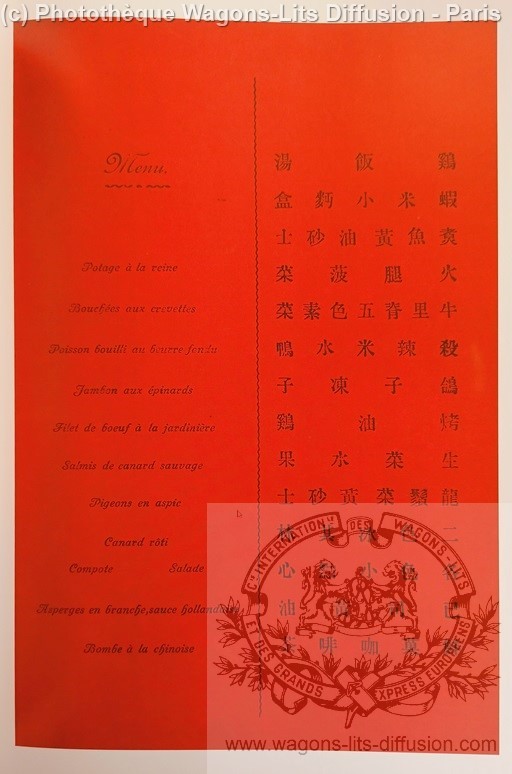 (c) Photothèque Wagons-Lits Diffusion - Paris
Menu.
Potage à la reine
Bouchées aux crevettes
Poisson bouilli au beurre fondu
Jambon aux épinards
Filet de boeuf à la jardinière
Salmis de canard sauvage
Pigeons en aspic
Canard rôti
Compote Salade
Asperges en branche, sauce hollandaise
Bombe à la chinoise
湯 飯 鷄
盒 麪 小 米 蝦
士 砂 油 黃 魚
菜 菠 腿 火
菜 素 色 五 脊 里 牛
鴨 水 米 辣
子 凍 子 鴿
鷄 油 烤
果 水 菜 生
士 砂 黃 菜 鬚 龍
二
心 小
油
啡 咖
CIE INTERNATIONALE DES WAGONS-LITS
ET DES GRANDS EXPRESS EUROPÉENS
www.wagons-lits-diffusion.com